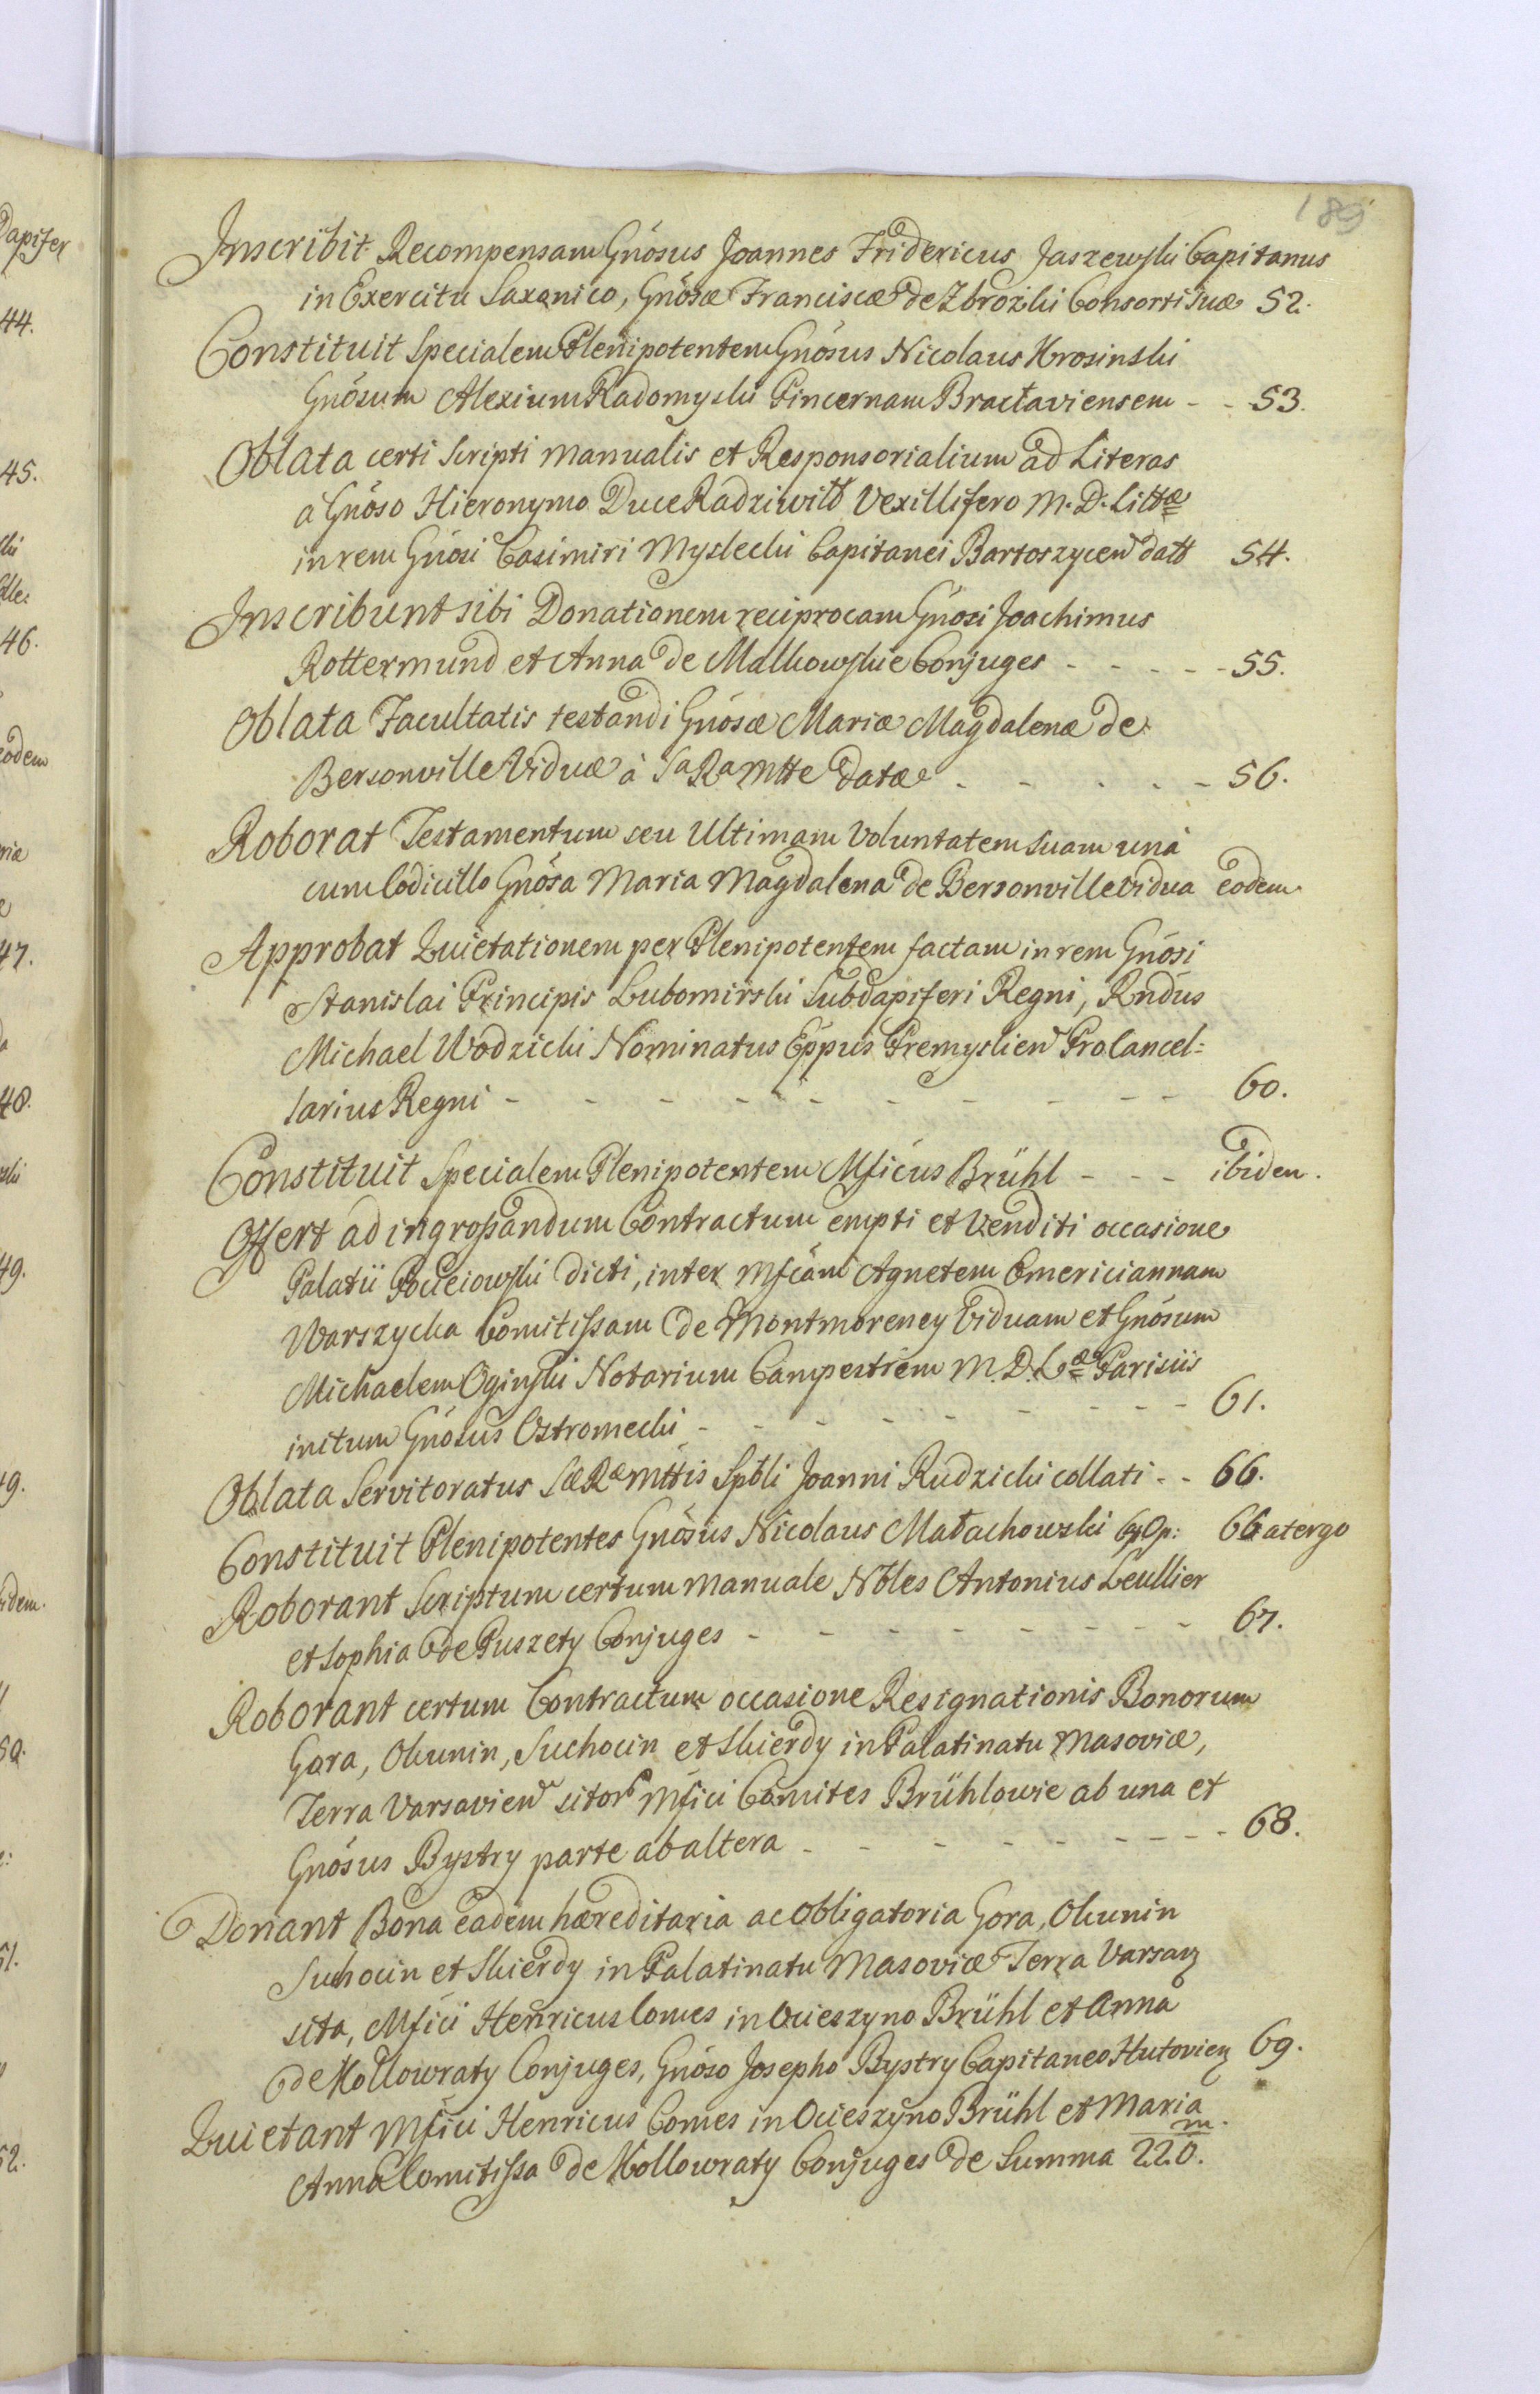 189
Inscribit Recompensam Gnosus Joannes Fridericus Jaszewski Capitanus
in Exercitu Saxonico, Gnosæ Franciscæ de Zbrozki Consorti suæ 52.
Constituit Specialem Plenipotentem Gnosus Nicolaus Krosinski
Gnosum Alexium Radomyski Pincernam Bractaviensem - - 53.
Oblata certi Scripti manualis et Responsorialium ad Literas
a Gnoso Hieronymo Duce Radziwiłł Vexillifero M. D. Littæ
in rem Gnosi Casimiri Myslecki Capitanei Bartoszycen datt 54.
Inscribunt sibi Donationem reciprocam Gnosi Joachimus
Rottermund et Anna de Malkowskie Conjuges - - - - - 55.
Oblata Facultatis testandi Gnosæ Mariæ Magdalenæ de
Bersonville Viduæ à Sa Ra Mtte datæ - - - - - 56.
Roborat Testamentum seu Ultimam Voluntatem suam unà
cum Codicillo Gnosa Maria Magdalena de Bersonville vidua eodem
Approbat Quietationem per Plenipotentem factam in rem Gnosi
Stanislai Principis Lubomirski Subdapiferi Regni, Rndus
Michael Wodzicki Nominatus Eppus Premyslien Procancel:
larius Regni - - - - - - - - - - 60.
Constituit Specialem Plenipotentem Mficus Brühl - - - ibidem.
Offert ad ingrossandum Contractum empti et venditi occasione
Palatii Pocieiowski dicti, inter Mficam Agnetem Emericiannam
Warszycka Comitissam de Montmorency Viduam et Gnosum
Michaelem Oginski Notarium Campestrem M. D. Læ Parisiis
initum Gnosus Ostromecki - - - - - - - - 61.
Oblata Servitoratus Sæ Ræ Mttis Spbli Joanni Rudzicki collati - - 66.
Constituit Plenipotentes Gnosus Nicolaus Małachowski 66 a tergo
Roborant Scriptum certum manuale Nbles Antonius Leullier
et Sophia de Puszety Conjuges - - - - - - - - 67.
Roborant certum Contractum occasione Resignationis Bonorum
Gora, Okunin, Suchocin et Skierdy in Palatinatu Masoviæ,
Terra Varsavien sitor Mfici Comites Brühlowie ab una et
Gnosus Bystry parte ab altera - - - - - - - - 68.
Donant Bona eadem hæreditaria ac obligatoria Gora, Okunin
Suchocin et Skierdy in Palatinatu Masoviæ Terra Varsav
sita, Mficii Henricus Comes in Ocieszyno Brühl et Anna
de Kollowraty Conjuges, Gnoso Josepho Bystry Capitaneo Hutovien 69.
Quietant Mfici Henricus Comes in Ocieszyno Brühl et Maria
Anna Comitissa de Kollowraty Conjuges de Summa 220. m.
Dapifer
44.
45.
46.
eodem
47.
48.
49.
49.
51.
52.